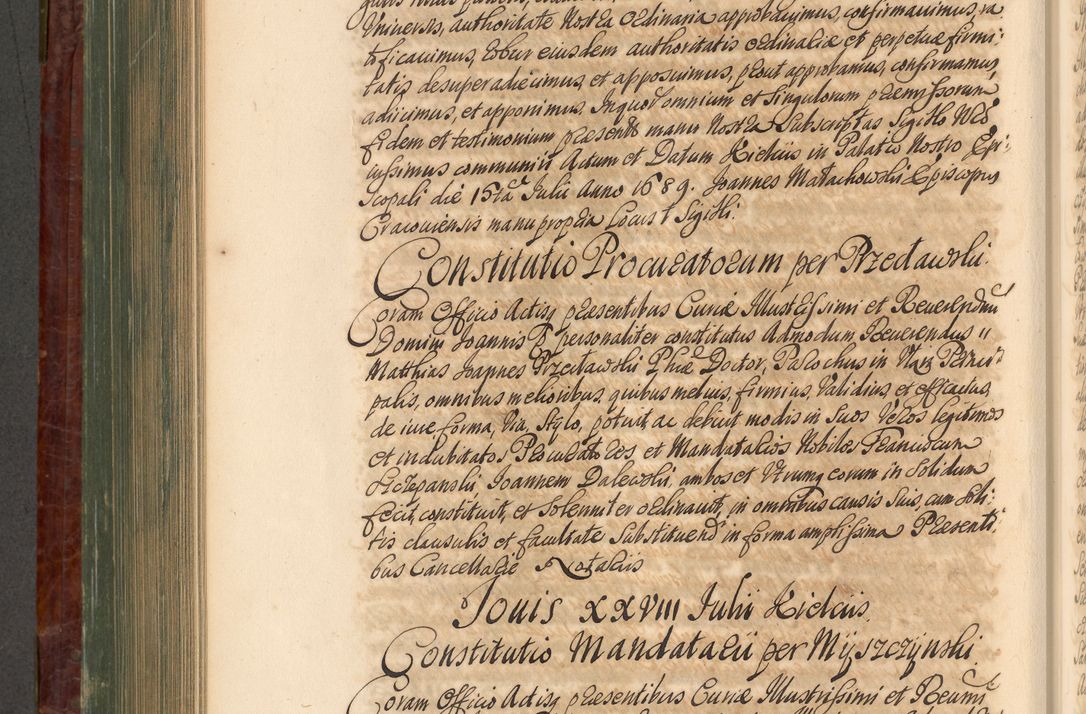 Universis, authoritate Nostra Ordinaria approbavimus, confirmavimus, ra
tificavimus, robur eiusdem authoritatis ordinariæ et perpetuæ firmi:
tatis desuper adiecimus, et apposuimus, prout approbamus, confirmamus,
adiicimus, et apponimus. In quor. omnium et Singulorum præmyssorum
fidem et testimonium præsentes manu Nostra Subscriptas Sigillo
iussimus communiri Actum et Datum Kielciis in Palatio Nostro Epi:
scopali die 15ta Julii Anno 1689. Joannes Małachowski Episcopus
Cracoviensis manu propria Locus + Sigilli.
Constitutio Procuratorum per Przecławski.
Coram Officio Actisq præsentibus Curiæ Illustrissimi et Reverendissimi
Domini Joannis personaliter constitutus Admodum Reverendus
Matthias Joannes Przecławski Phiæ Doctor, Parochus in
palis, omnibus melioribus, quibus melius, firmius, Validius, et efficacius
de iure forma, Via, Stylo, potuit ac debuit modis in Suos Veros legitimos
et indubitatos Procuratores et Mandatarios Nobiles Franciscum
Szczepanski Joannem Dalewski, ambos et Utrumq eorum in Solidum
fecit, constituit, et Solenniter ordinavit, in omnibus causis Suis, cum Soli:
tis clausulis et facultate Substituendi in forma amplissima Præsenti
bus Cancellariæ Notariis
Jovis XXVIII Julii Kielciis.
Constitutio Mandatarii per Myszczynski.
Coram Officio Actisq præsentibus Curiæ Illustrissimi et Reverendissimi